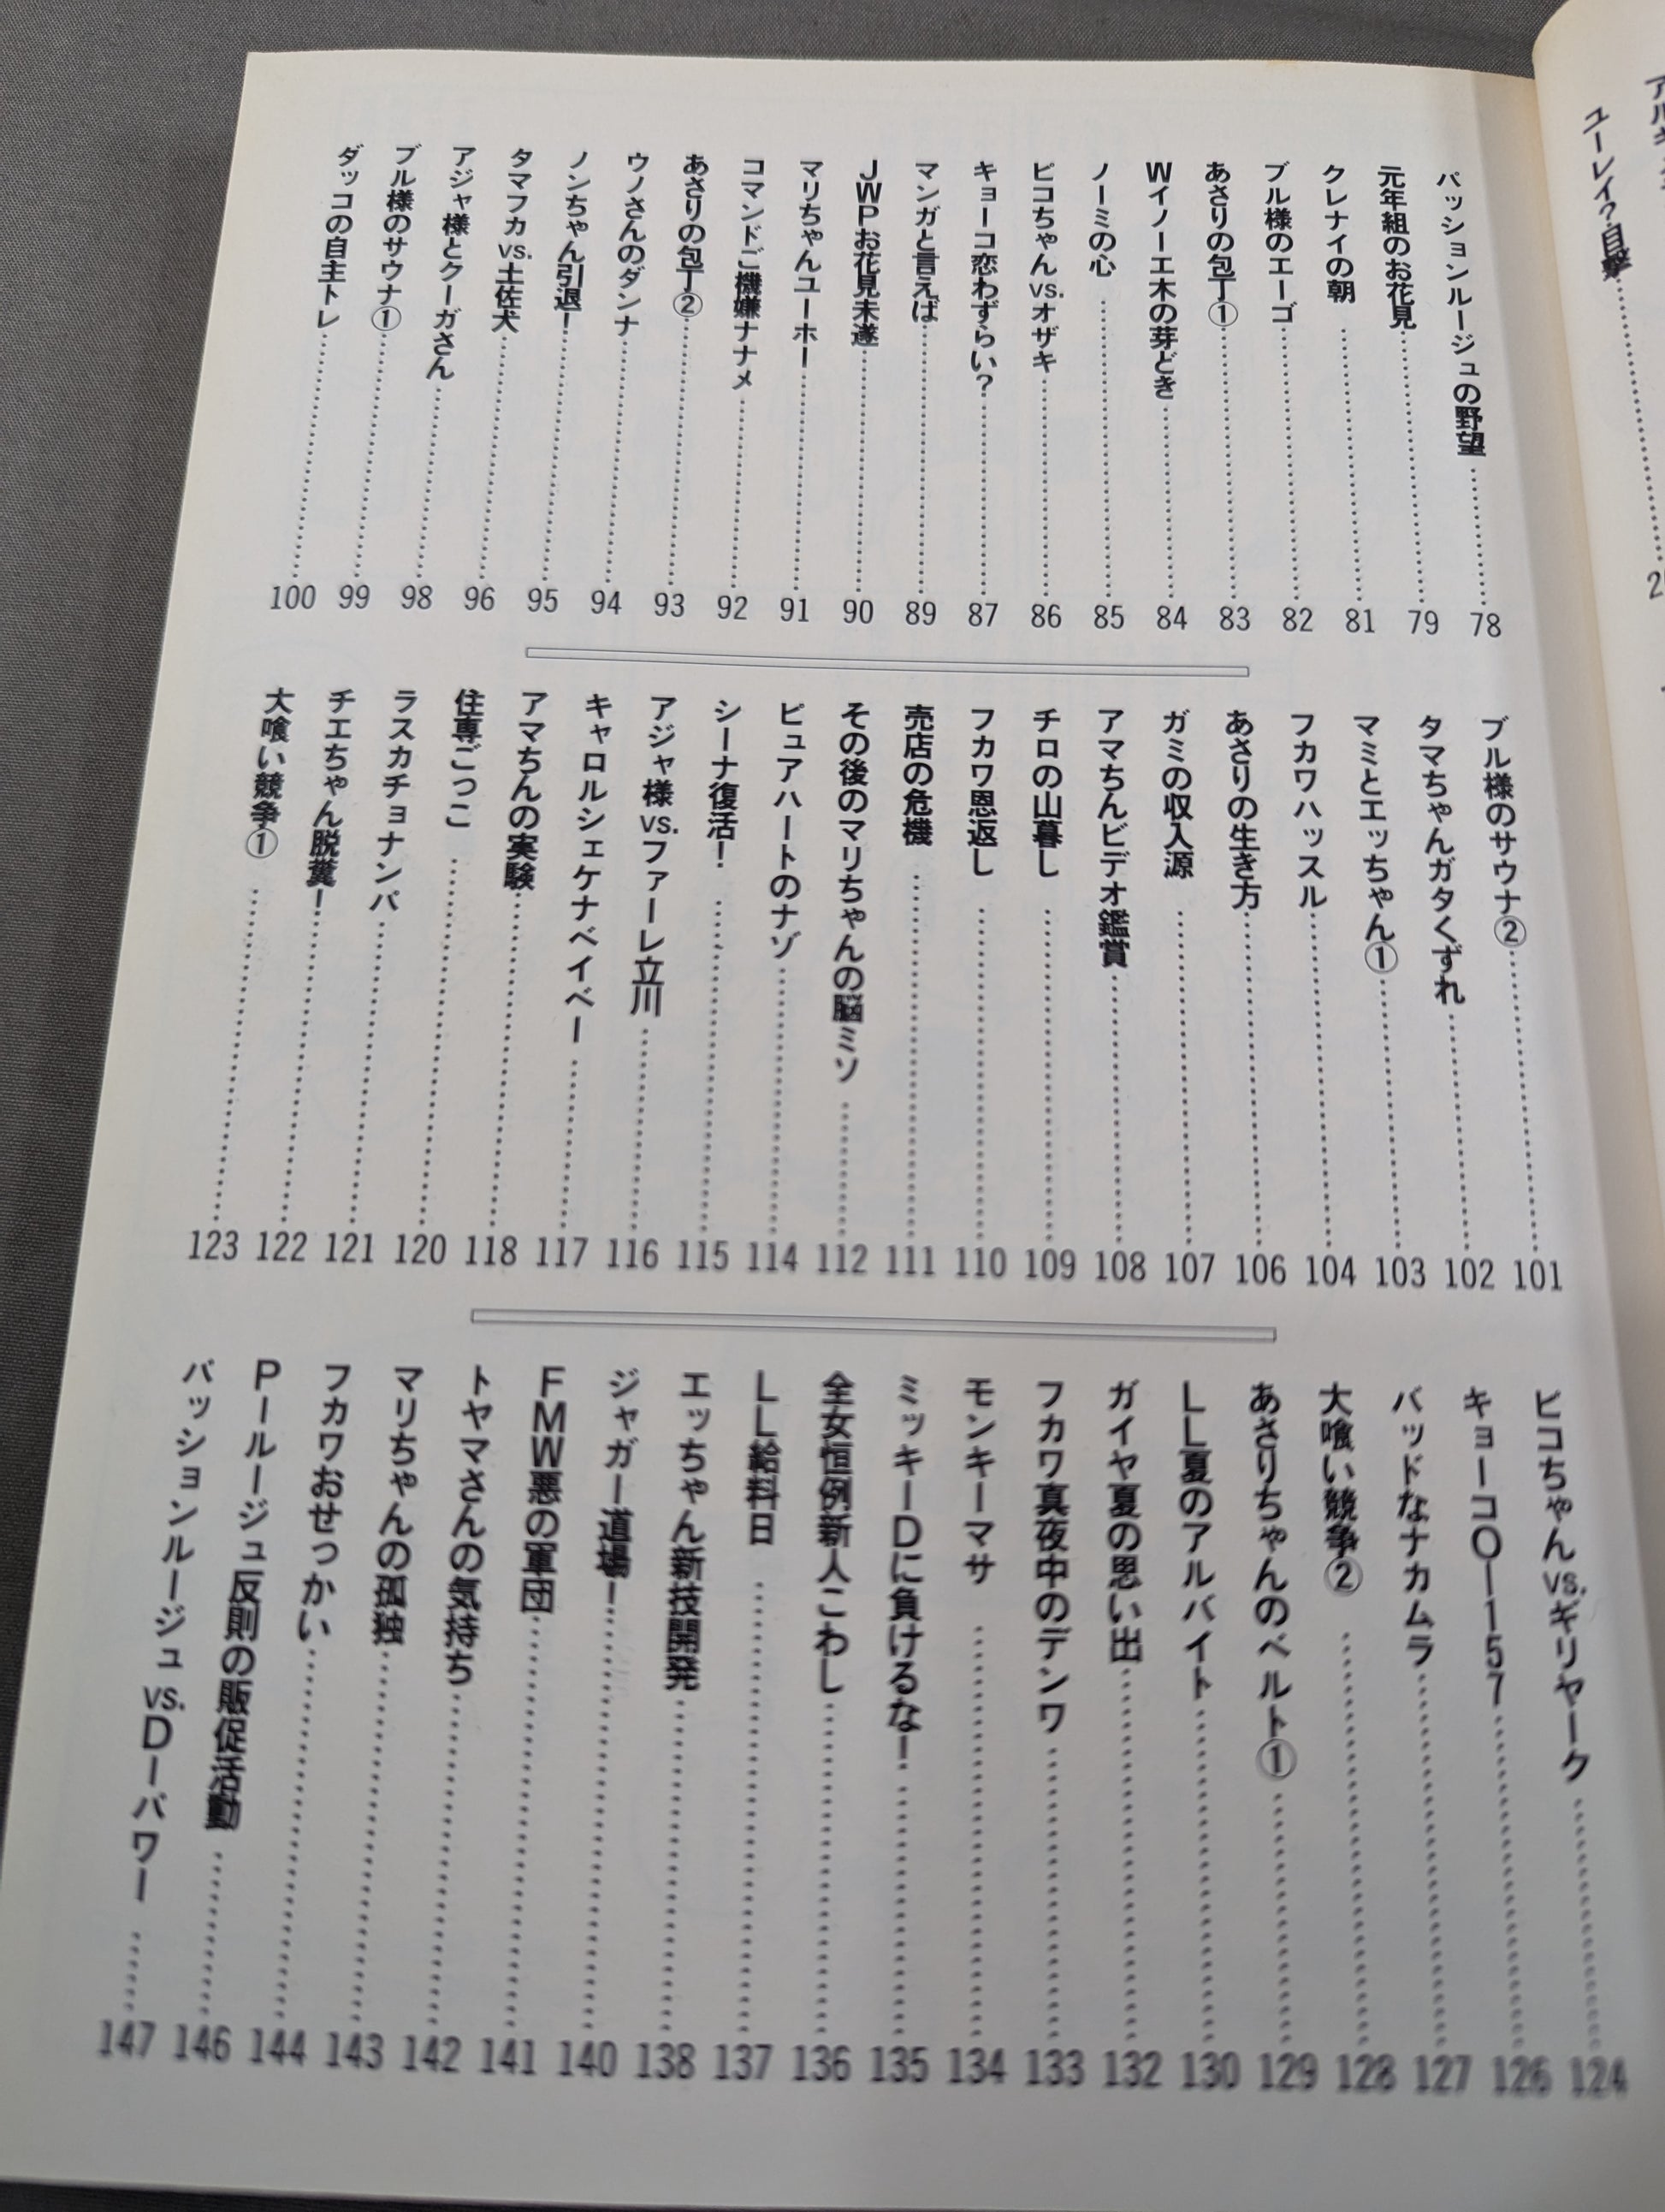 パッションルージュの野望……78
元年組のお花見……79
クレナイの朝……81
ブル様のエーゴ……82
あさりの包丁①……83
Wイノーエ木の芽どき……84
ノーミの心……85
ピコちゃんvs.オザキ……86
キョーコ恋わずらい?……87
マンガと言えば……89
JWPお花見未遂……90
マリちゃんユーホー……91
コマンドご機嫌ナナメ……92
あさりの包丁②……93
ウノさんのダンナ……94
ノンちゃん引退!……95
タマフカvs.土佐犬……96
アジャ様とクーガさん……98
ブル様のサウナ①……99
ダッコの自主トレ……100
ブル様のサウナ②……101
タマちゃんガタくずれ……102
マミとエッちゃん①……103
フカワハッスル……104
あさりの生き方……106
ガミの収入源……107
アマちんビデオ鑑賞……108
チロの山暮し……109
フカワ恩返し……110
売店の危機……111
その後のマリちゃんの脳ミソ……112
ピュアハートのナゾ……114
シーナ復活!……115
アジャ様vs.ファーレ立川……116
キャロルシェケナベイベー……117
アマちんの実験……118
住専ごっこ……120
ラスカチョナンパ……121
チエちゃん脱糞!……122
大喰い競争①……123
ピコちゃんvs.ギリヤーク……124
キョーコO-157……126
バッドなナカムラ……127
大喰い競争②……128
あさりちゃんのベルト①……129
LL夏のアルバイト……130
ガイヤ夏の思い出……132
フカワ真夜中のデンワ……133
モンキーマサ……134
ミッキーDに負けるな!……135
全女恒例新人こわし……136
LL給料日……137
エッちゃん新技開発……138
ジャガー道場!……140
FMW悪の軍団……141
トヤマさんの気持ち……142
マリちゃんの孤独……143
フカワおせっかい……144
Pールージュ反則の販促活動……146
パッションルージュvs.Dーパワー……147
ユーレイ?目撃